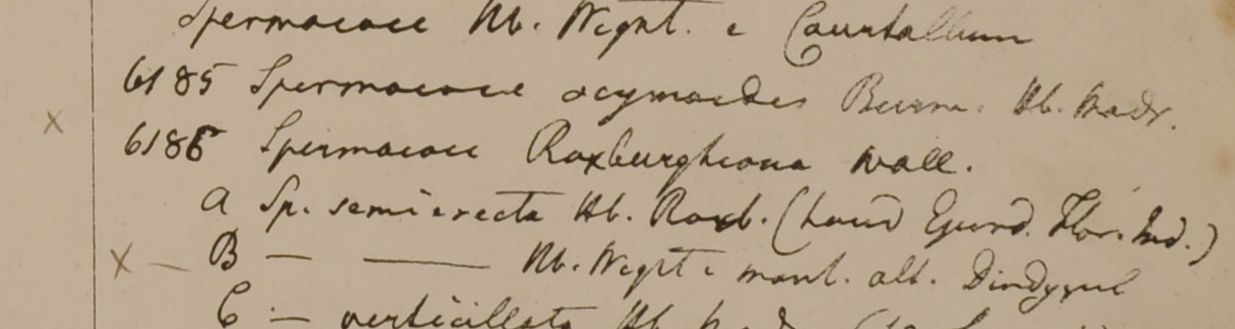 Spermacoce Hb. Wight. e Courtallum
6185 Spermacoce ocymoides Burm. Hb. Madr.
x 6186 Spermacoce Roxburghiana Wall.
A Sp. semierecta Hb. Roxb. (haud Ejusd. Flor. Ind.)
x — B — —— Hb. Wight e mont. alt. Dindygul
C — verticillata Hb.